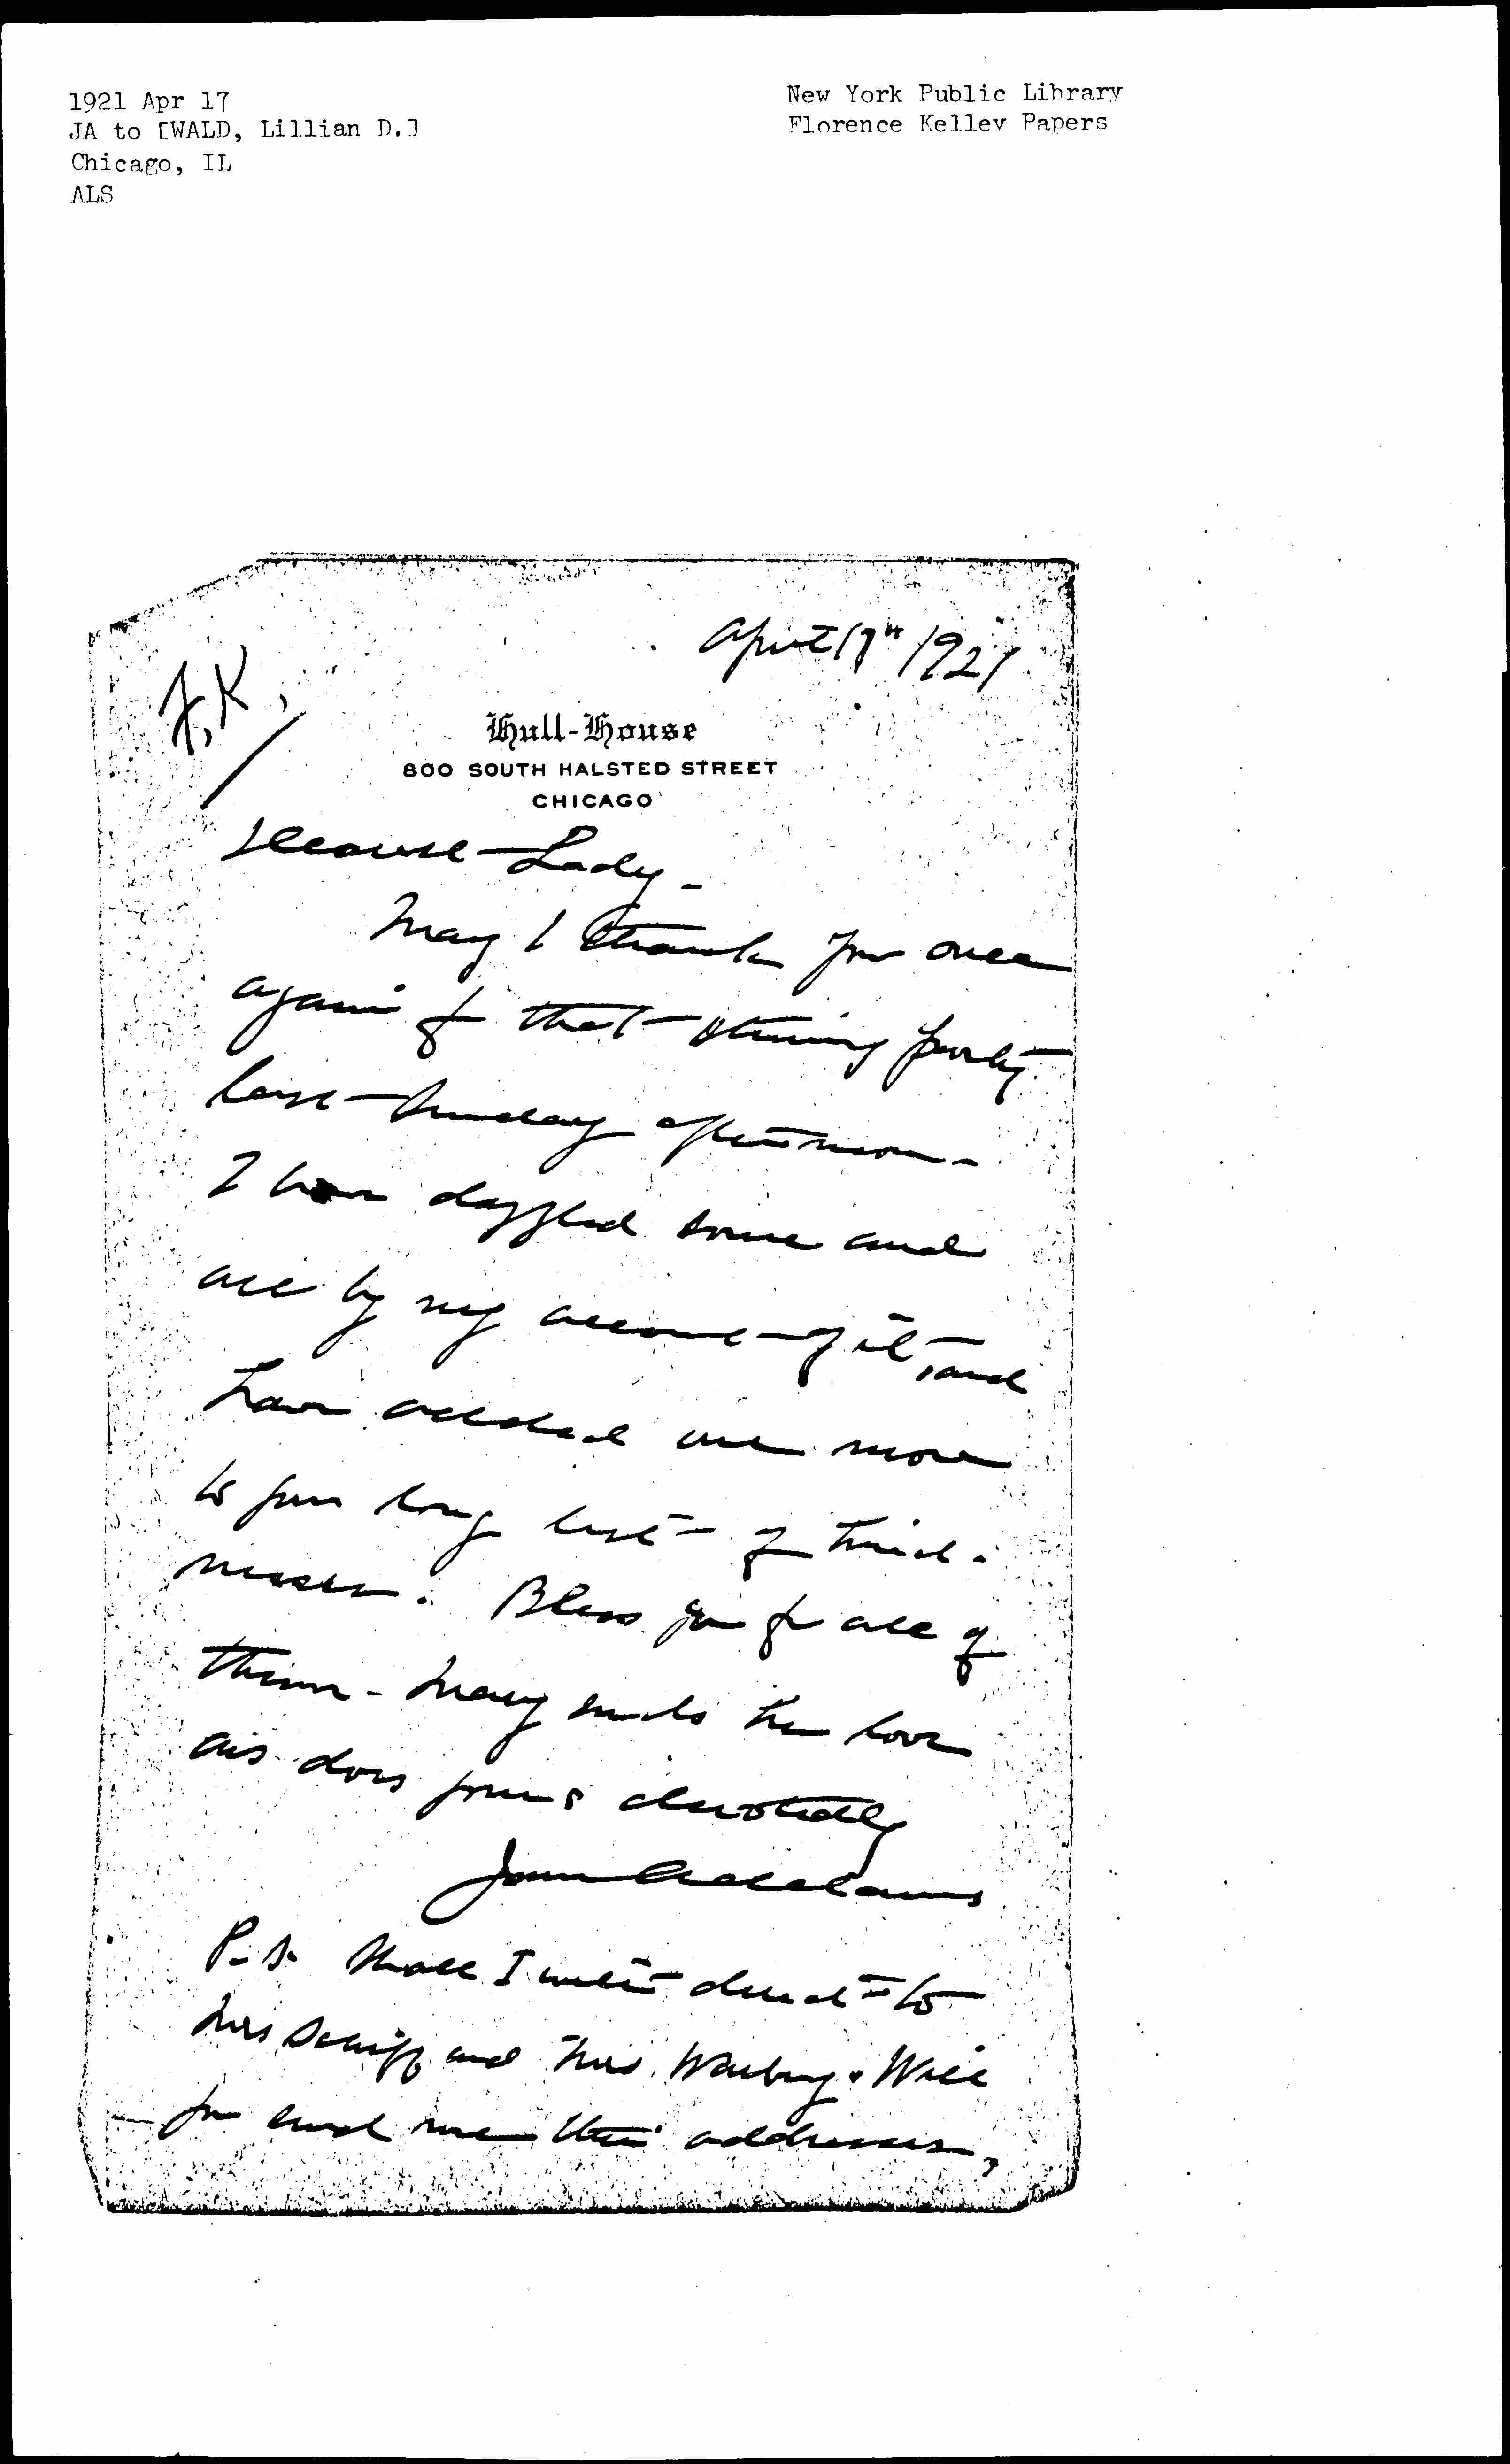 1921 Apr 17
JA to [WALD, Lillian D.]
Chicago, IL
ALS
New York Public Library
Florence Kelley Papers
April 17" 1921
F.K.
Hull-House
800 SOUTH HALSTED STREET
CHICAGO
Lady -
May I thank you once
again for that stunning party
last Sunday afternoon -
I have dazzled some and
all by my account of it, and
have added one more
to your long list of kind-
nesses. Bless you for all of
them - Mary sends her love
as does yours devotedly
Jane Addams
P.S. Shall I write direct to
Mrs Schiff and Mrs. Warburg. Will
you send me their addresses,